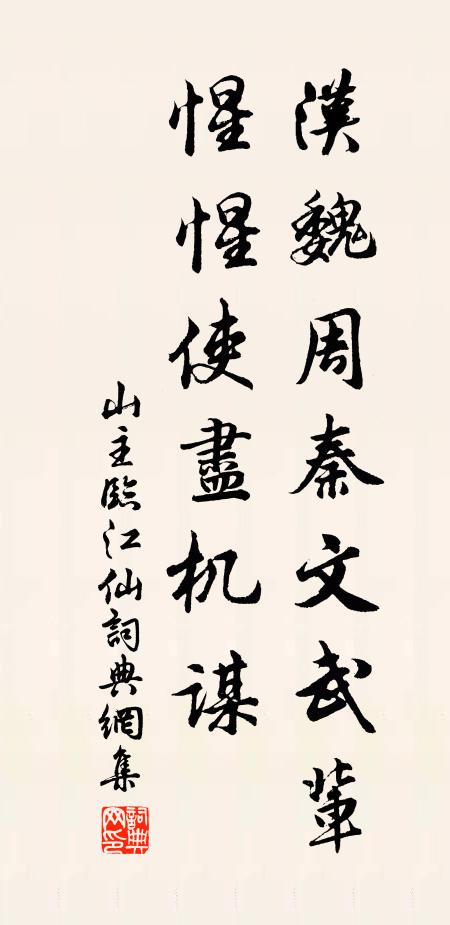 漢魏周秦文武輩
惺惺使盡机謀
山主臨江仙詞典網集
詞典網印